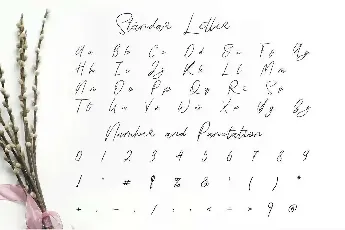 Standar Letter
A a B b C c D d E e F f G g
H h I i J j K k L l M m
N n O o P p Q q R r S s
T t U u V v W w X x Y y Z z
Number and Puncutation
0 1 2 3 4 5 6 7 8 9
! " # $ % & ' ( ) *
+ , - . / : ; < = > ? @